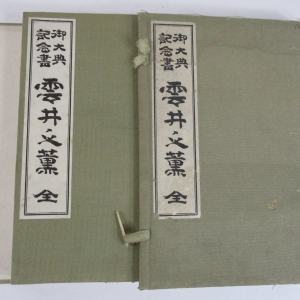 御大典
記念書
雲井之薫 全
御大典
記念書
雲井之薫 全